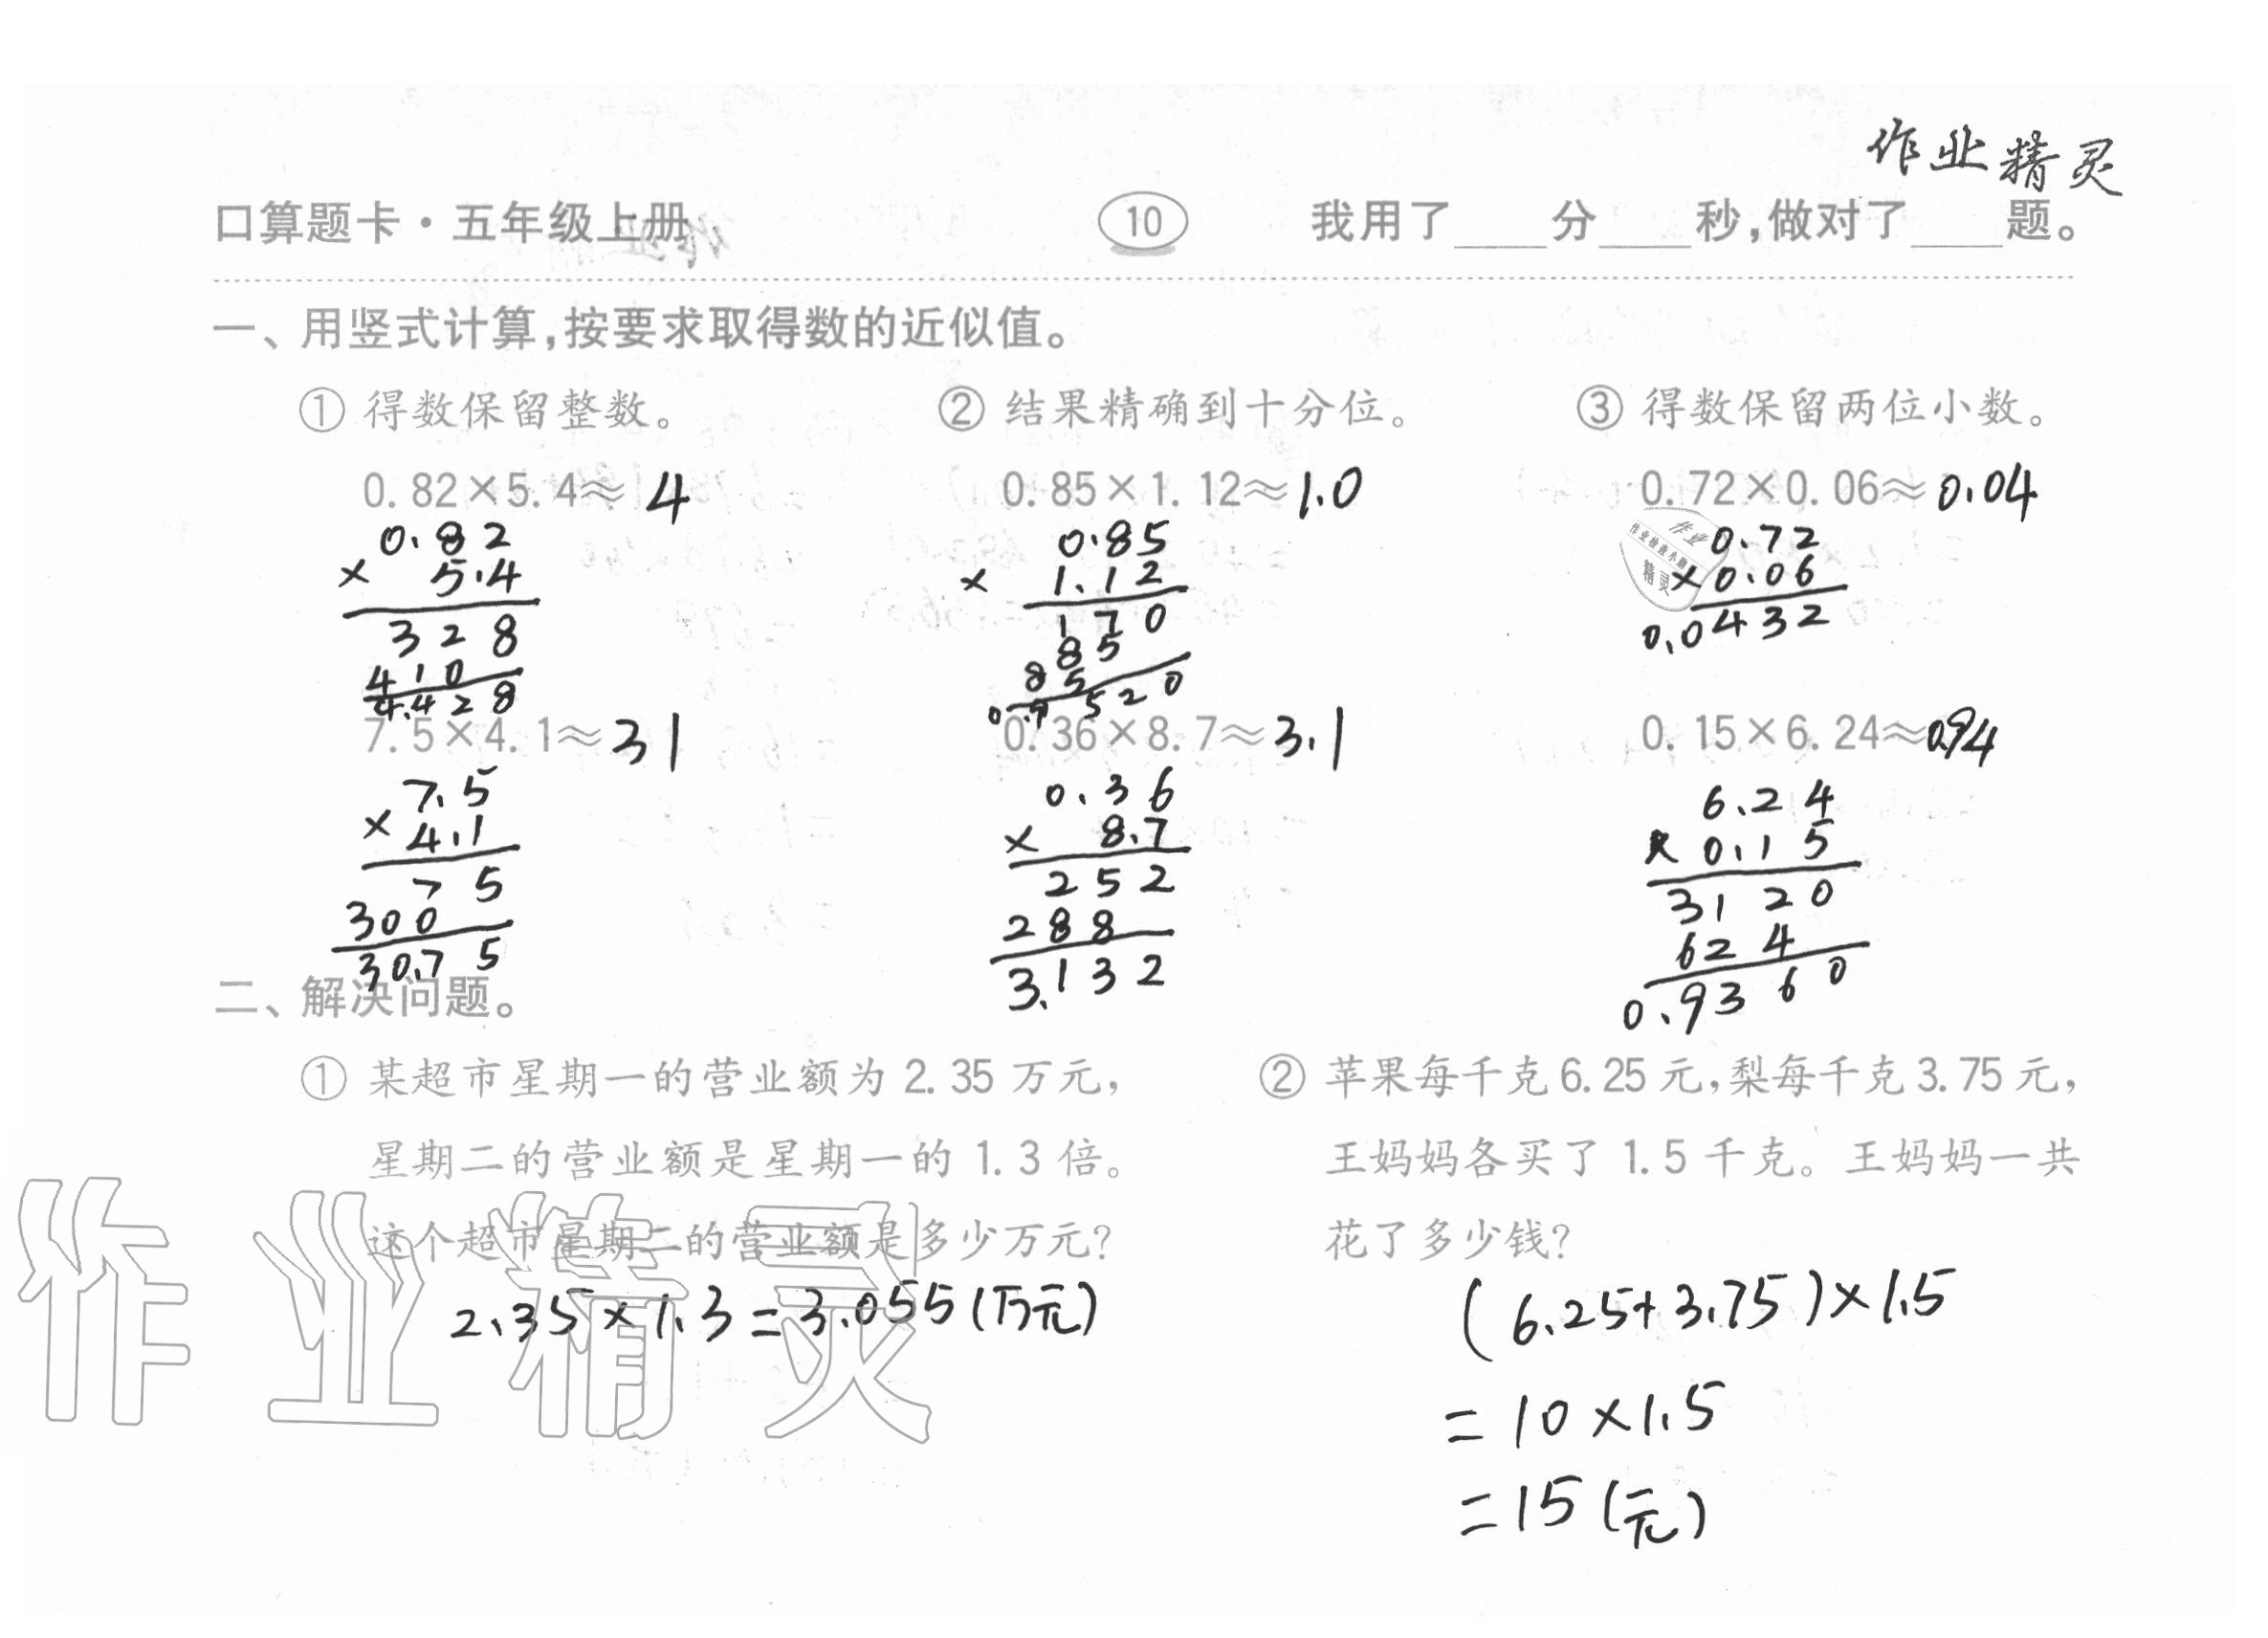 作业精灵
口算题卡·五年级上册 10 我用了____分____秒,做对了____题。
一、用竖式计算,按要求取得数的近似值。
① 得数保留整数。 ② 结果精确到十分位。 ③ 得数保留两位小数。
0.82×5.4≈ 4 0.85×1.12≈ 1.0 0.72×0.06≈ 0.04
0.82 0.85 0.72
× 5.4 × 1.12 ×0.06
328 170 0.0432
410 85
4.428 85
0.9520
7.5×4.1≈ 31 0.36×8.7≈ 3.1 0.15×6.24≈ 0.94
7.5 0.36 6.24
× 4.1 × 8.7 × 0.15
75 252 3120
300 288 624
30.75 3.132 0.9360
二、解决问题。
① 某超市星期一的营业额为 2.35 万元,
星期二的营业额是星期一的 1.3 倍。
这个超市星期二的营业额是多少万元?
2.35×1.3=3.055(万元)
② 苹果每千克6.25元,梨每千克3.75元,
王妈妈各买了 1.5 千克。王妈妈一共
花了多少钱?
(6.25+3.75)×1.5
=10×1.5
=15(元)
作业精灵
作业
作业检查小助
精灵